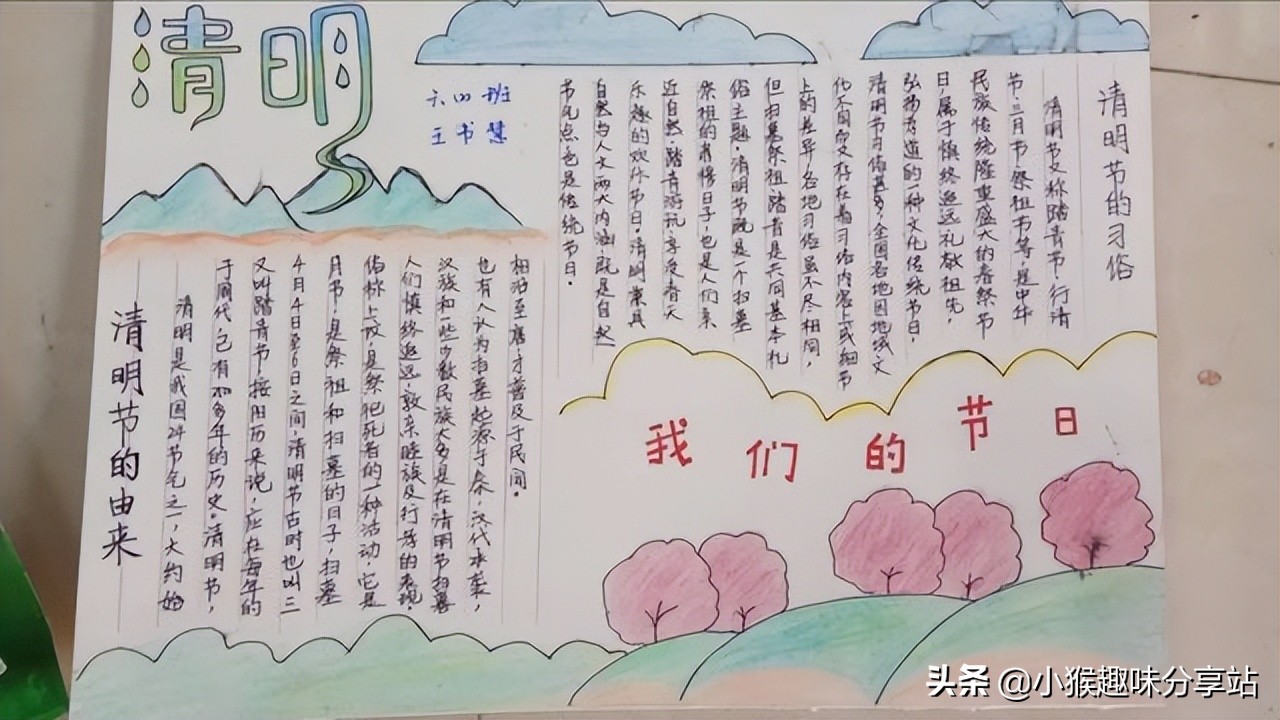 清明
六四班
王书慧
清明节的习俗
清明节又称踏青节,行清
节,三月节,祭祖节等,是中华
民族传统隆重盛大的春祭节
日,属于慎终追远,礼敬祖先,
弘扬孝道的一种文化传统节日,
清明节习俗甚多,全国各地因地域文
化不同而又存在着习俗内容上或细节
上的差异,各地习俗虽不尽相同,
但扫墓祭祖,踏青是共同基本礼
俗主题,清明节既是一个扫墓
祭祖的肃穆日子,也是人们亲
近自然,踏青游玩,享受春天
乐趣的欢乐节日,清明兼具
自然与人文两大内涵,既是自然
节气点,也是传统节日。
清明节的由来
清明是我国24节气之一,大约始
于周代,已有多年的历史。清明节,
又叫踏青节,按阳历来说,应在每年的
4月4日至6日之间,清明节古时也叫三
月节,是祭祖和扫墓的日子,扫墓
俗称上坟,是祭祀死者的一种活动,它是
人们慎终追远,敦亲睦族及行孝的表现,
汉族和一些少数民族大多是在清明节扫墓
也有人认为扫墓起源于秦,汉代承袭,
相沿至唐,才普及于民间。
我们的节日
头条 @小猴趣味分享站